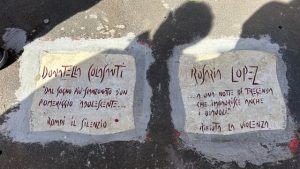 DONATELLA COLASANTI
"DAL SOGNO PIÙ SPAVENTATO D'UN
POMERIGGIO ADOLESCENTE...
ROMPI IL SILENZIO
ROSARIA LOPEZ
...A UNA NOTTE DI TREGENDA
CHE IMPAURISCE ANCHE
I DIAVOLI"
RIFIUTA LA VIOLENZA